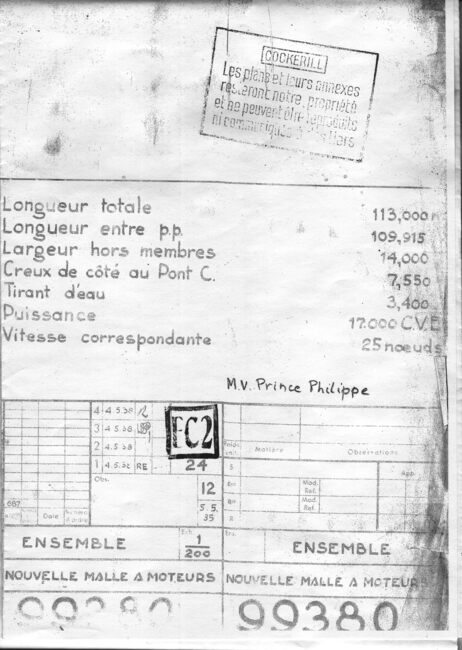 COCKERILL
Les plans et leurs annexes
resteront notre propriété
et ne peuvent être reproduits
ni communiqués à tiers
Longueur totale 113,000m
Longueur entre p.p. 109,915
Largeur hors membres 14,000
Creux de côté au Pont C. 7,550
Tirant d'eau 3,400
Puissance 17.000 C.V.E
Vitesse correspondante 25 noeuds
M.V. Prince Philippe
4 4.5.38
3 4.5.38
2 4.5.38
1 4.5.38 RE
EC2
24
Obs.
12
5.5.
35
687
Date
Poids
Matière
Observations
App.
S
Mod.
Ref.
Mod.
Ref.
R
ENSEMBLE
Ech. 1/200
ENSEMBLE
NOUVELLE MALLE A MOTEURS
NOUVELLE MALLE A MOTEURS
99380
99380